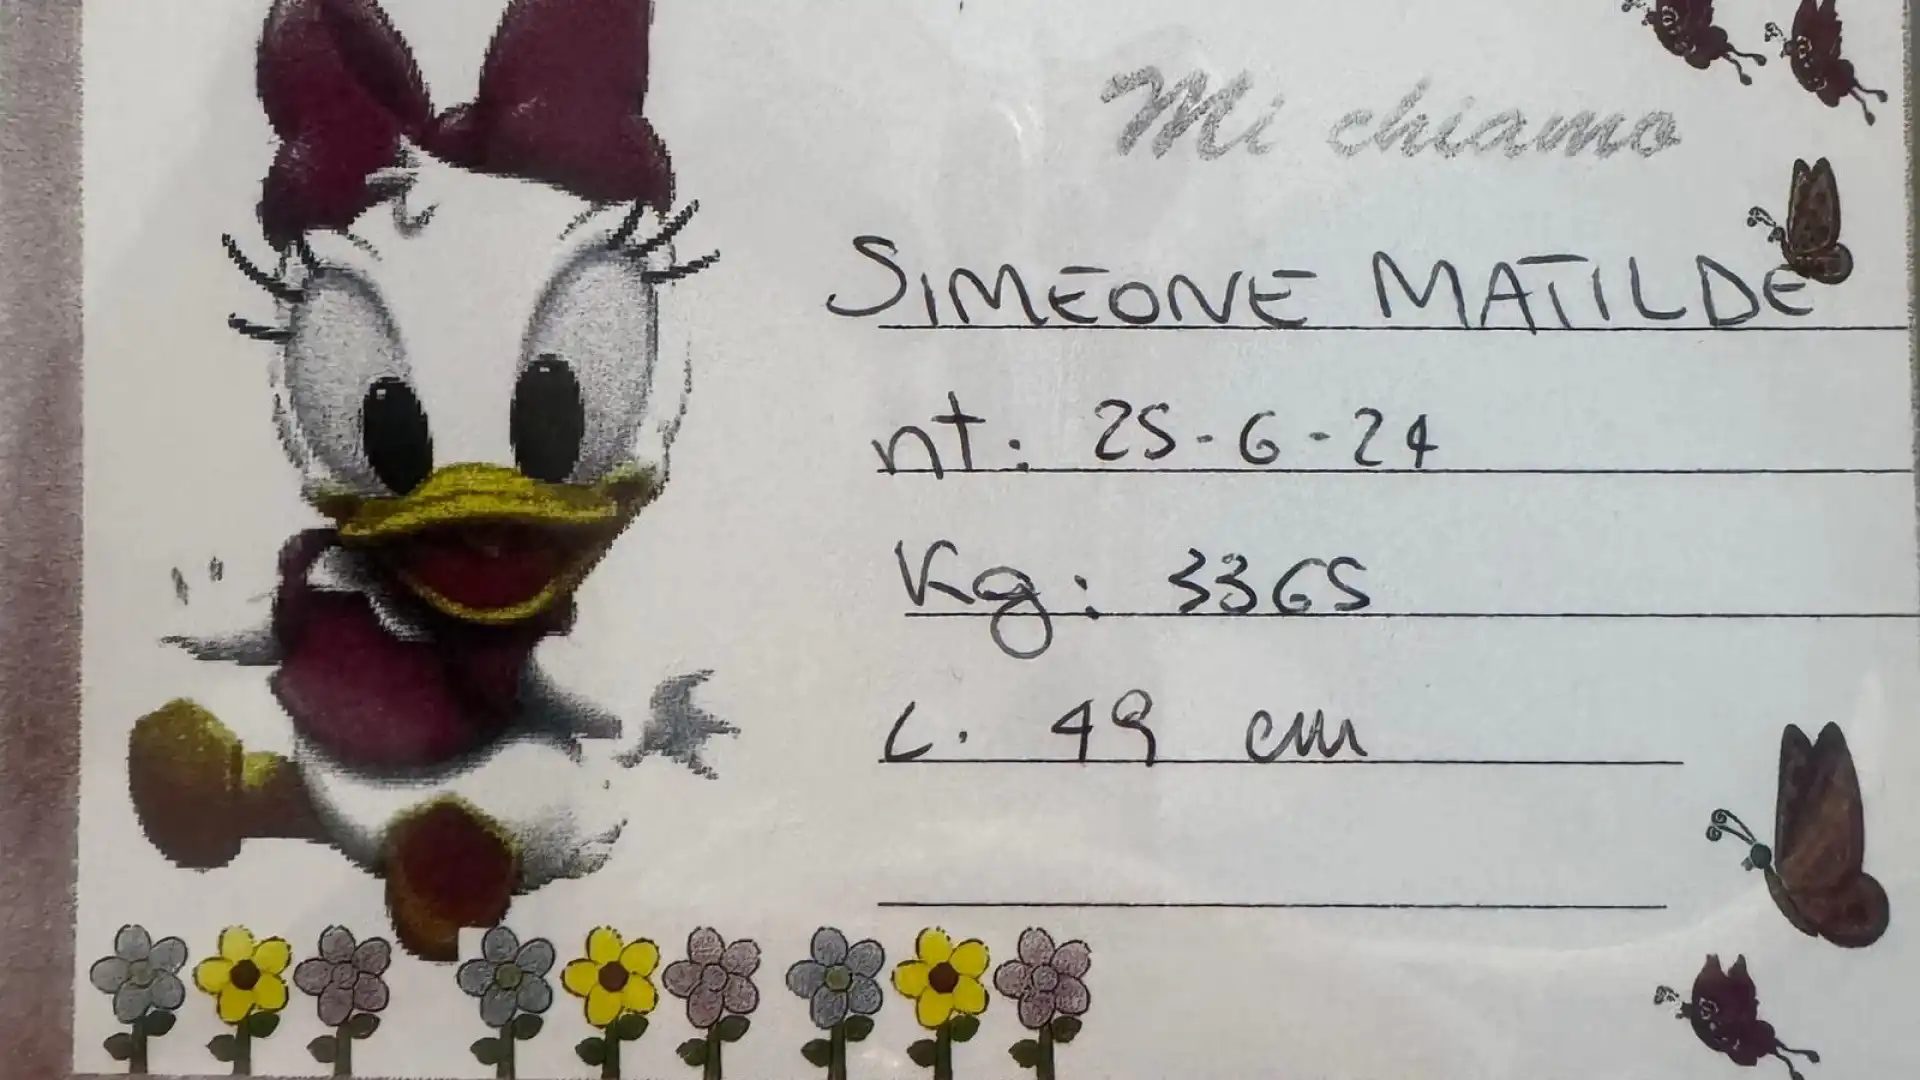 Mi chiamo
SIMEONE MATILDE
nt: 25-6-24
Kg: 3365
L. 49 cm